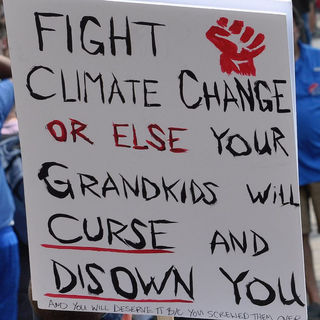 FIGHT
CLIMATE CHANGE
OR ELSE YOUR
GRANDKIDS WILL
CURSE AND
DISOWN YOU
AND YOU WILL DESERVE IT B/C YOU SCREWED THEM OVER